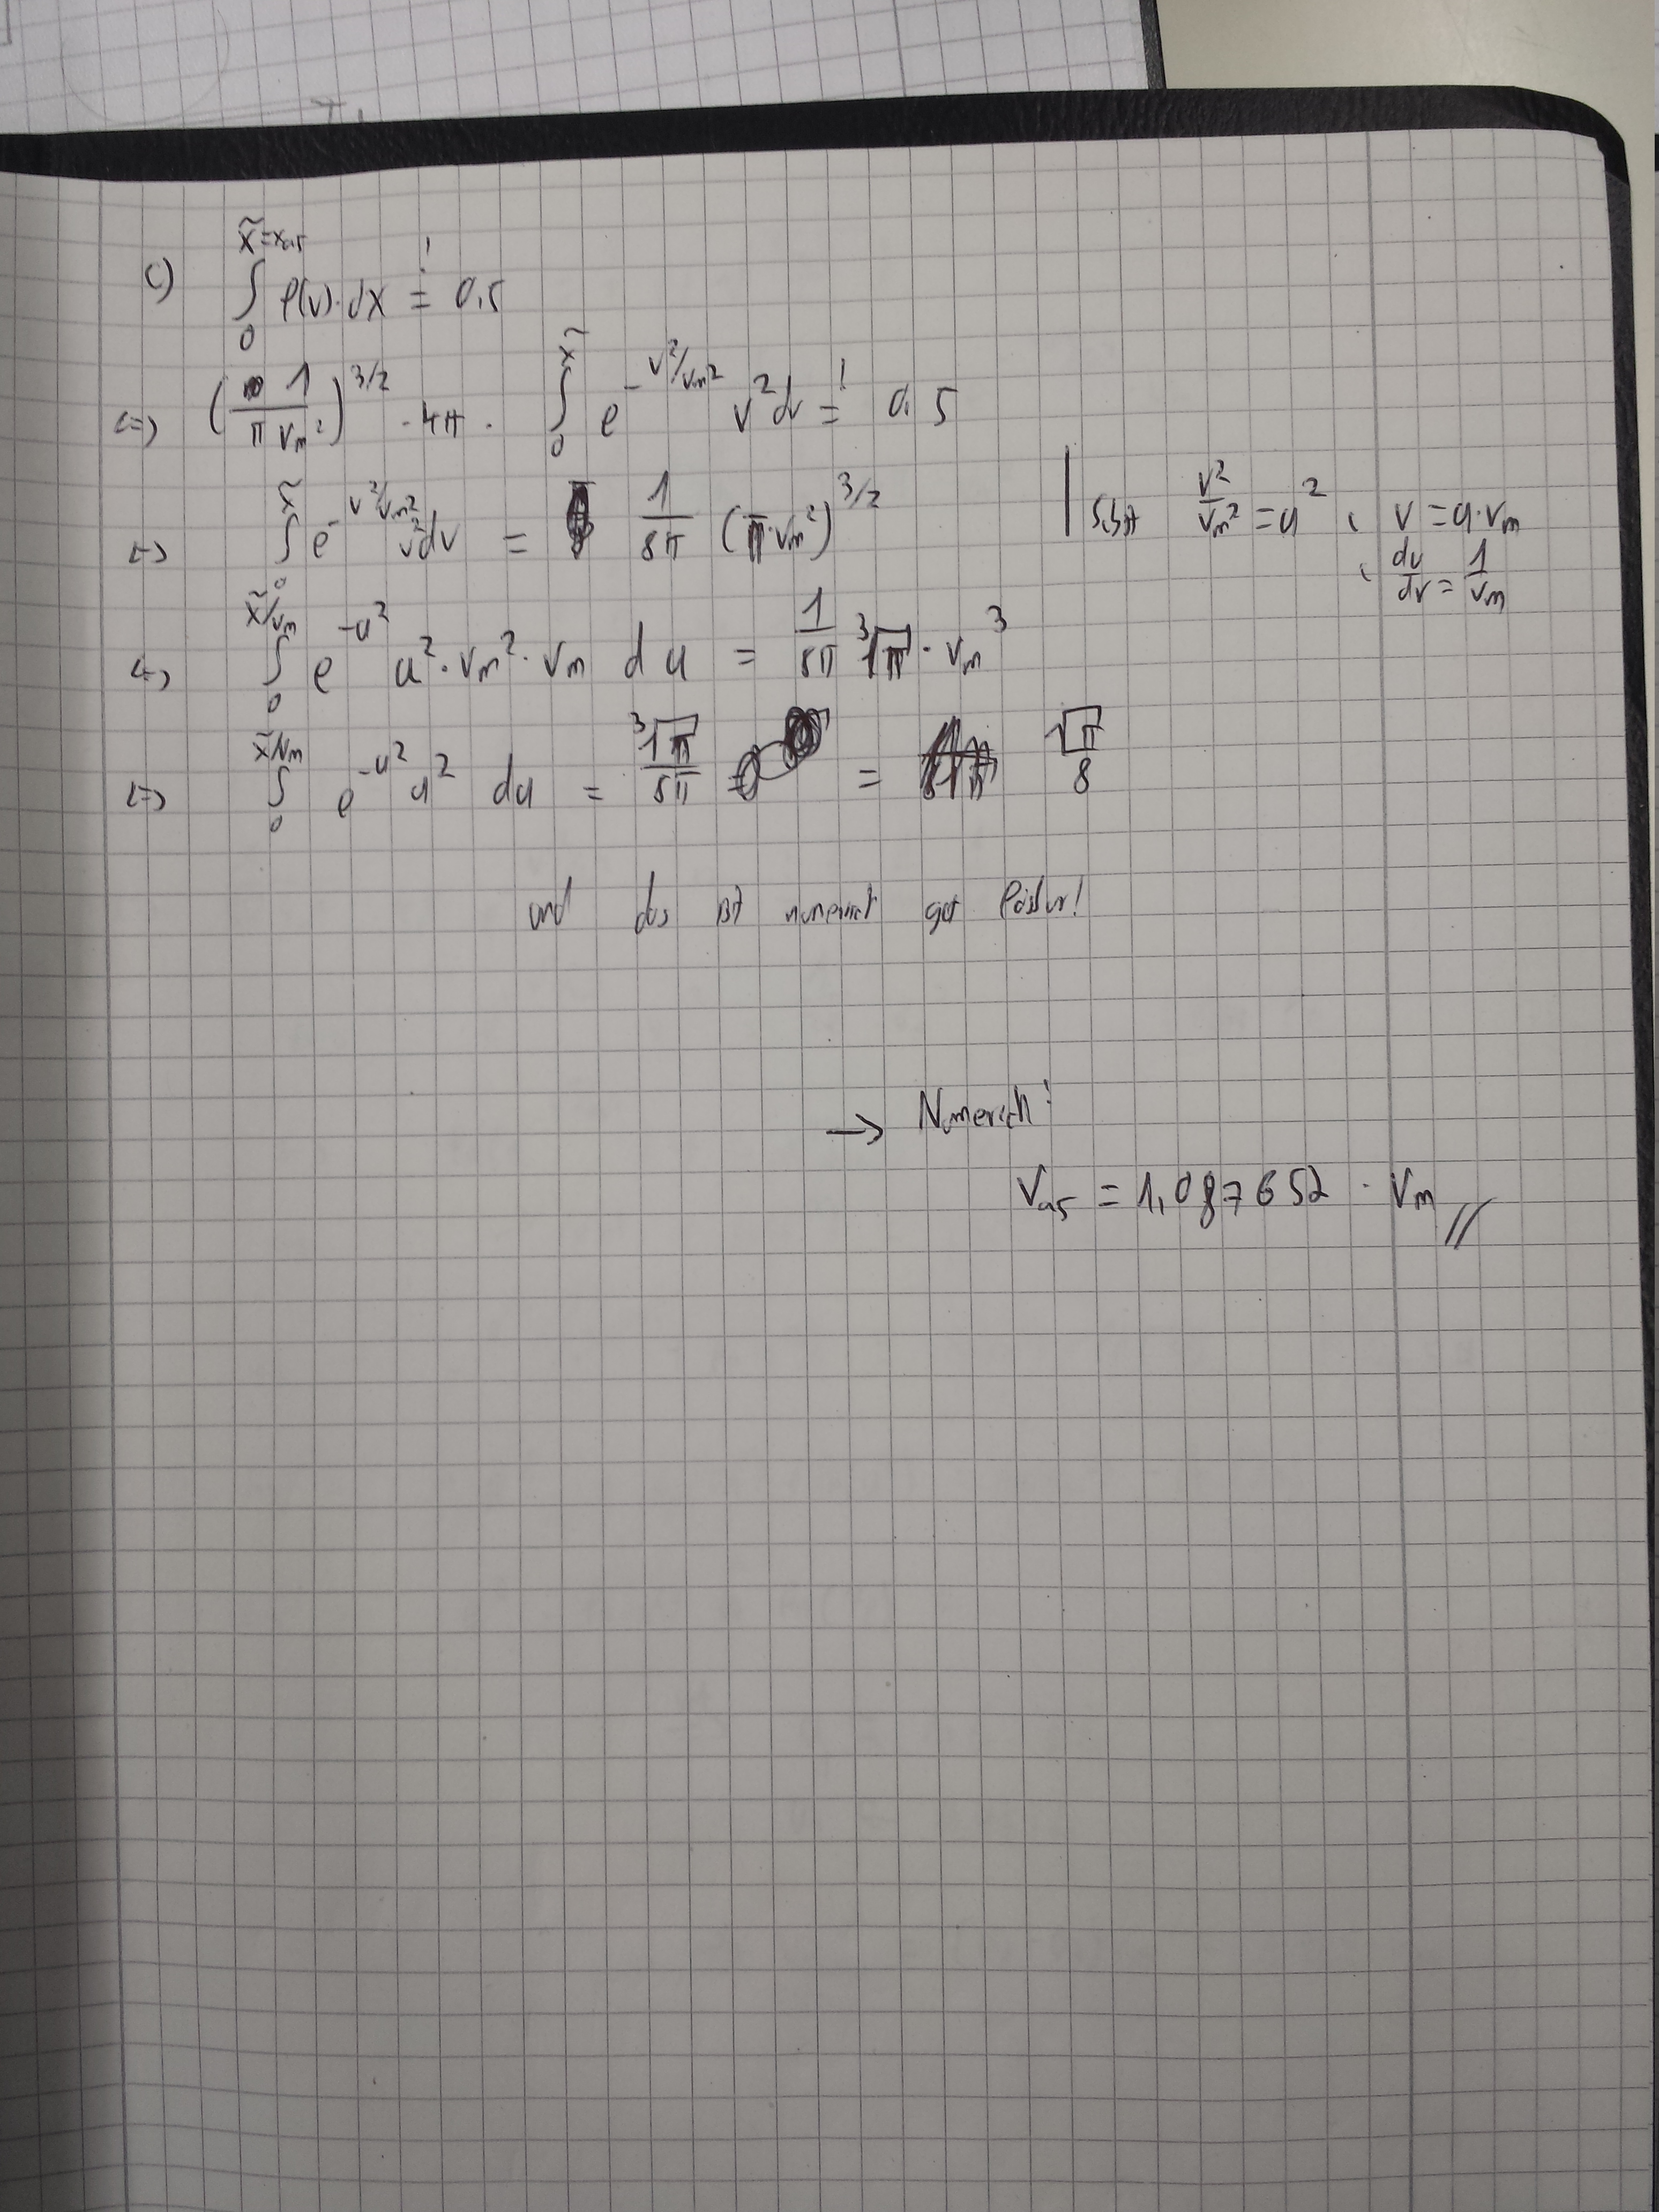 c) ∫₀^{x̃=x₀,₅} ρ(v)·dx =! 0,5
<=> (1/(π vₘ²))^{3/2} · 4π · ∫₀^{x̃} e^{-v²/vₘ²} v² dv =! 0,5
<=> ∫₀^{x̃} e^{-v²/vₘ²} v² dv = 1/(8π) (π·vₘ²)^{3/2} | Subst v²/vₘ² = u², v = u·vₘ
, du/dv = 1/vₘ
<=> ∫₀^{x̃/vₘ} e^{-u²} u²·vₘ²·vₘ du = 1/(8π) √π³ · vₘ³
<=> ∫₀^{x̃/vₘ} e^{-u²} u² du = √π³/(8π) = √π/8
und das ist numerisch gut lösbar!
→ Numerisch:
v₀,₅ = 1,087652 · vₘ //